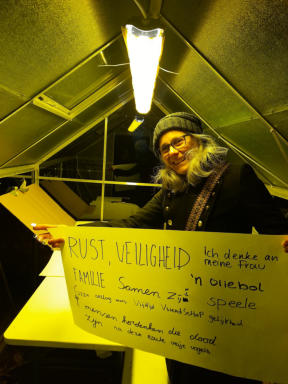 RUST, VEILIGHEID Ich denke an
meine Frau
FAMILIE Samen zijn 'n oliebol
Geen oorlog maar Vrijheid Vriendschap gelijkheid speele
mensen herdenken die dood
zijn na deze echte vrije vogels